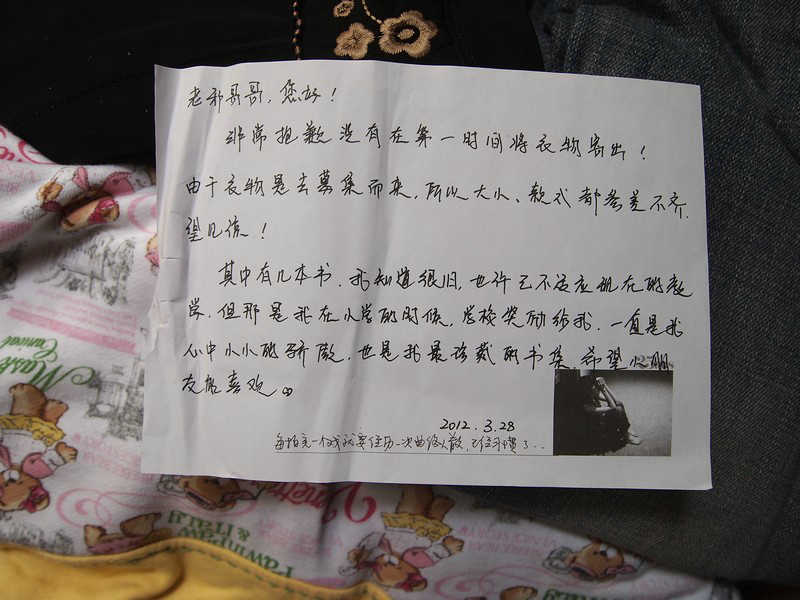 老邪哥哥，您好！
非常抱歉没有在第一时间将衣物寄出！
由于衣物是去募集而来，所以大小、款式都参差不齐，
望见谅！
其中有几本书，我知道很旧，也许已不适应现在的教
学，但那是我在小学的时候，学校奖励给我，一直是我
心中小小的骄傲，也是我最珍藏的书集，希望小朋
友能喜欢。
2012.3.28
每拍完一个戏就要经历一次曲终人散，已经习惯了..
Mask
Carnival
Pawnpaw
& ITALY